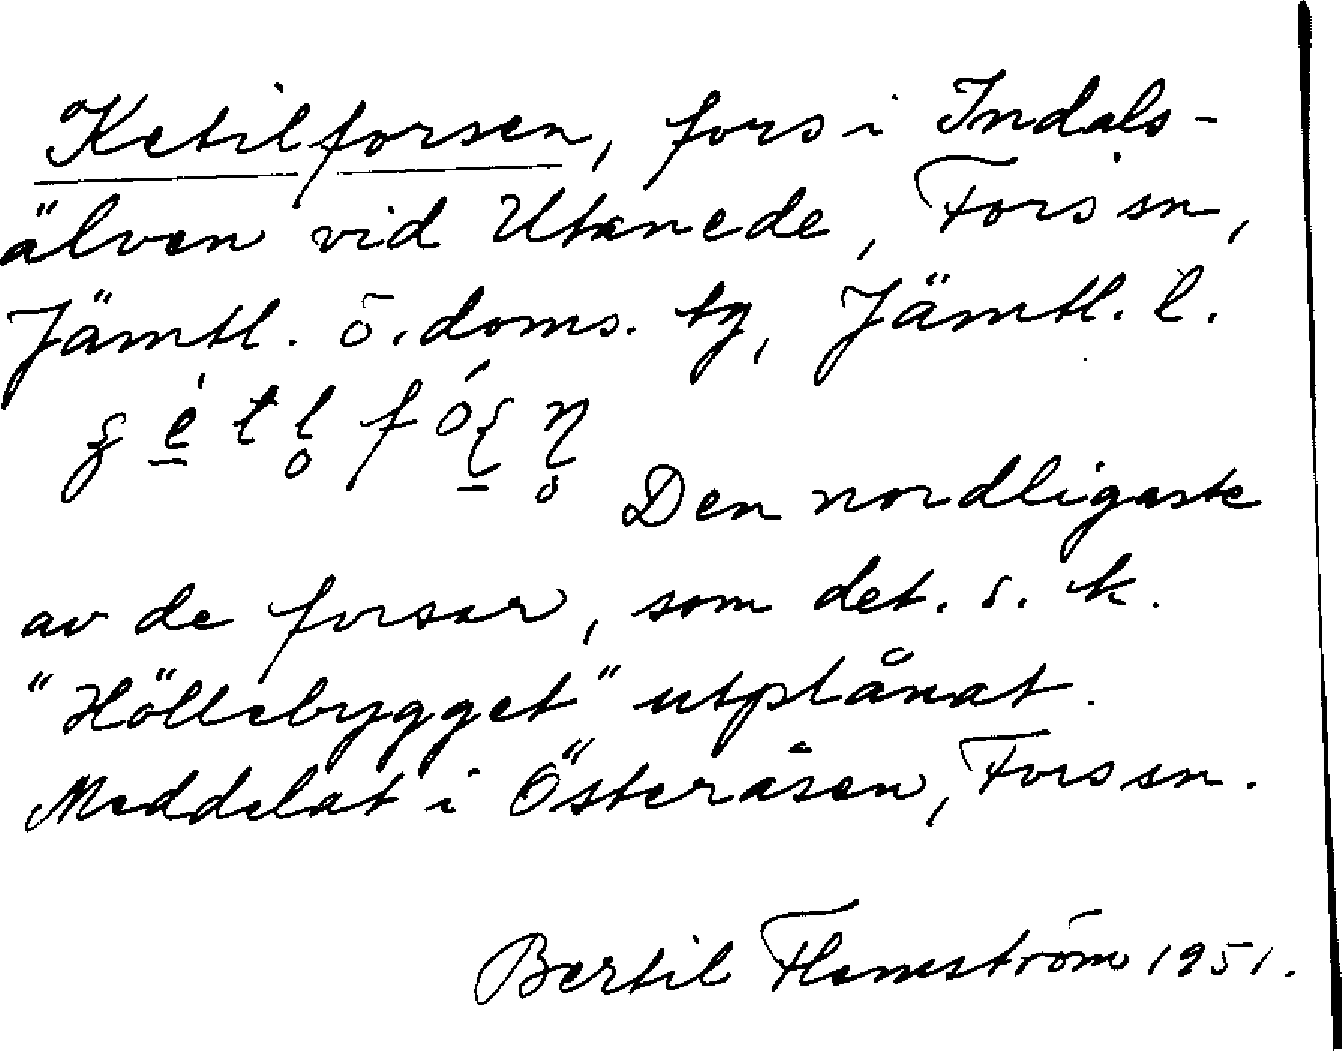 Ketilforsen, fors i Indals-
älven vid Utanede, Fors sn,
Jämtl. ö. doms. tg, Jämtl. l.
Den nordligaste
av de forsar, som det. s. k.
"Höllebygget" utplånat.
Meddelat i Österåsen, Fors sn.
Bertil Flemström 1951.